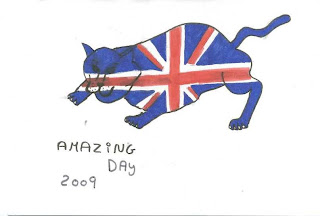 AMAZING
DAY
2009